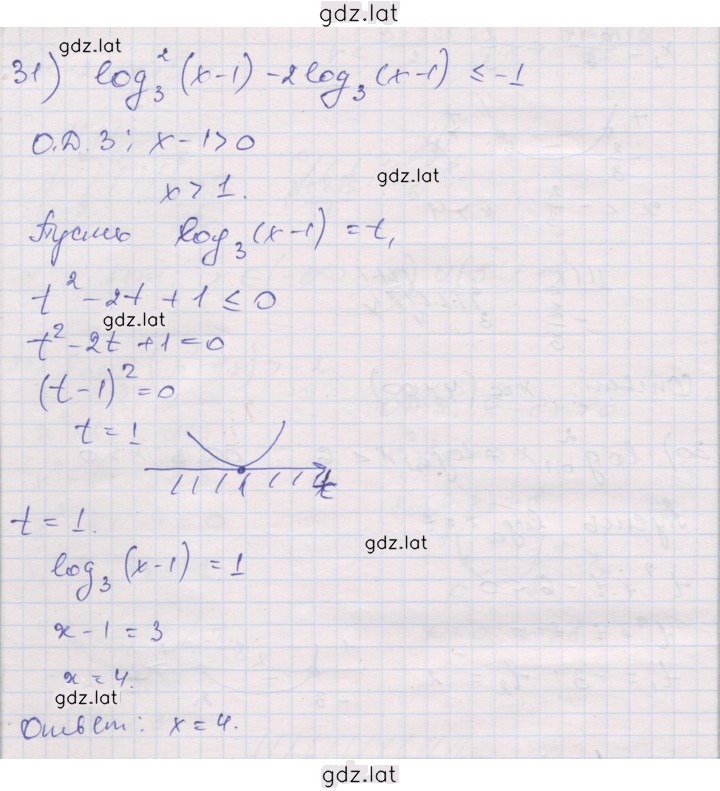 gdz.lat
gdz.lat
31) log₃²(x-1) - 2log₃(x-1) ≤ -1
О.Д.З: x-1>0
gdz.lat
x>1.
Пусть log₃(x-1) = t,
t² - 2t + 1 ≤ 0
gdz.lat
t² - 2t + 1 = 0
(t-1)² = 0
t = 1
1 t
t = 1.
gdz.lat
log₃(x-1) = 1
x - 1 = 3
x = 4.
gdz.lat
Ответ: x = 4.
gdz.lat